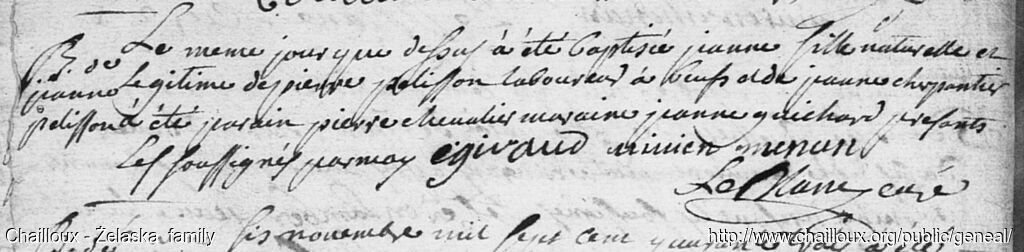 Le meme jour que dessus à été baptisée jeanne fille naturelle et
B. de
jeanne
pelisson
legitime de pierre pelisson laboureur à boeufs et de jeanne charpantier
à été parain pierre chevalier maraine jeanne guichard presants
les soussignés par moy egiraud menan
Le Blanc curé
six novembre mil sept cent
Chailloux - Żelaska family
http://www.chailloux.org/public/geneal/